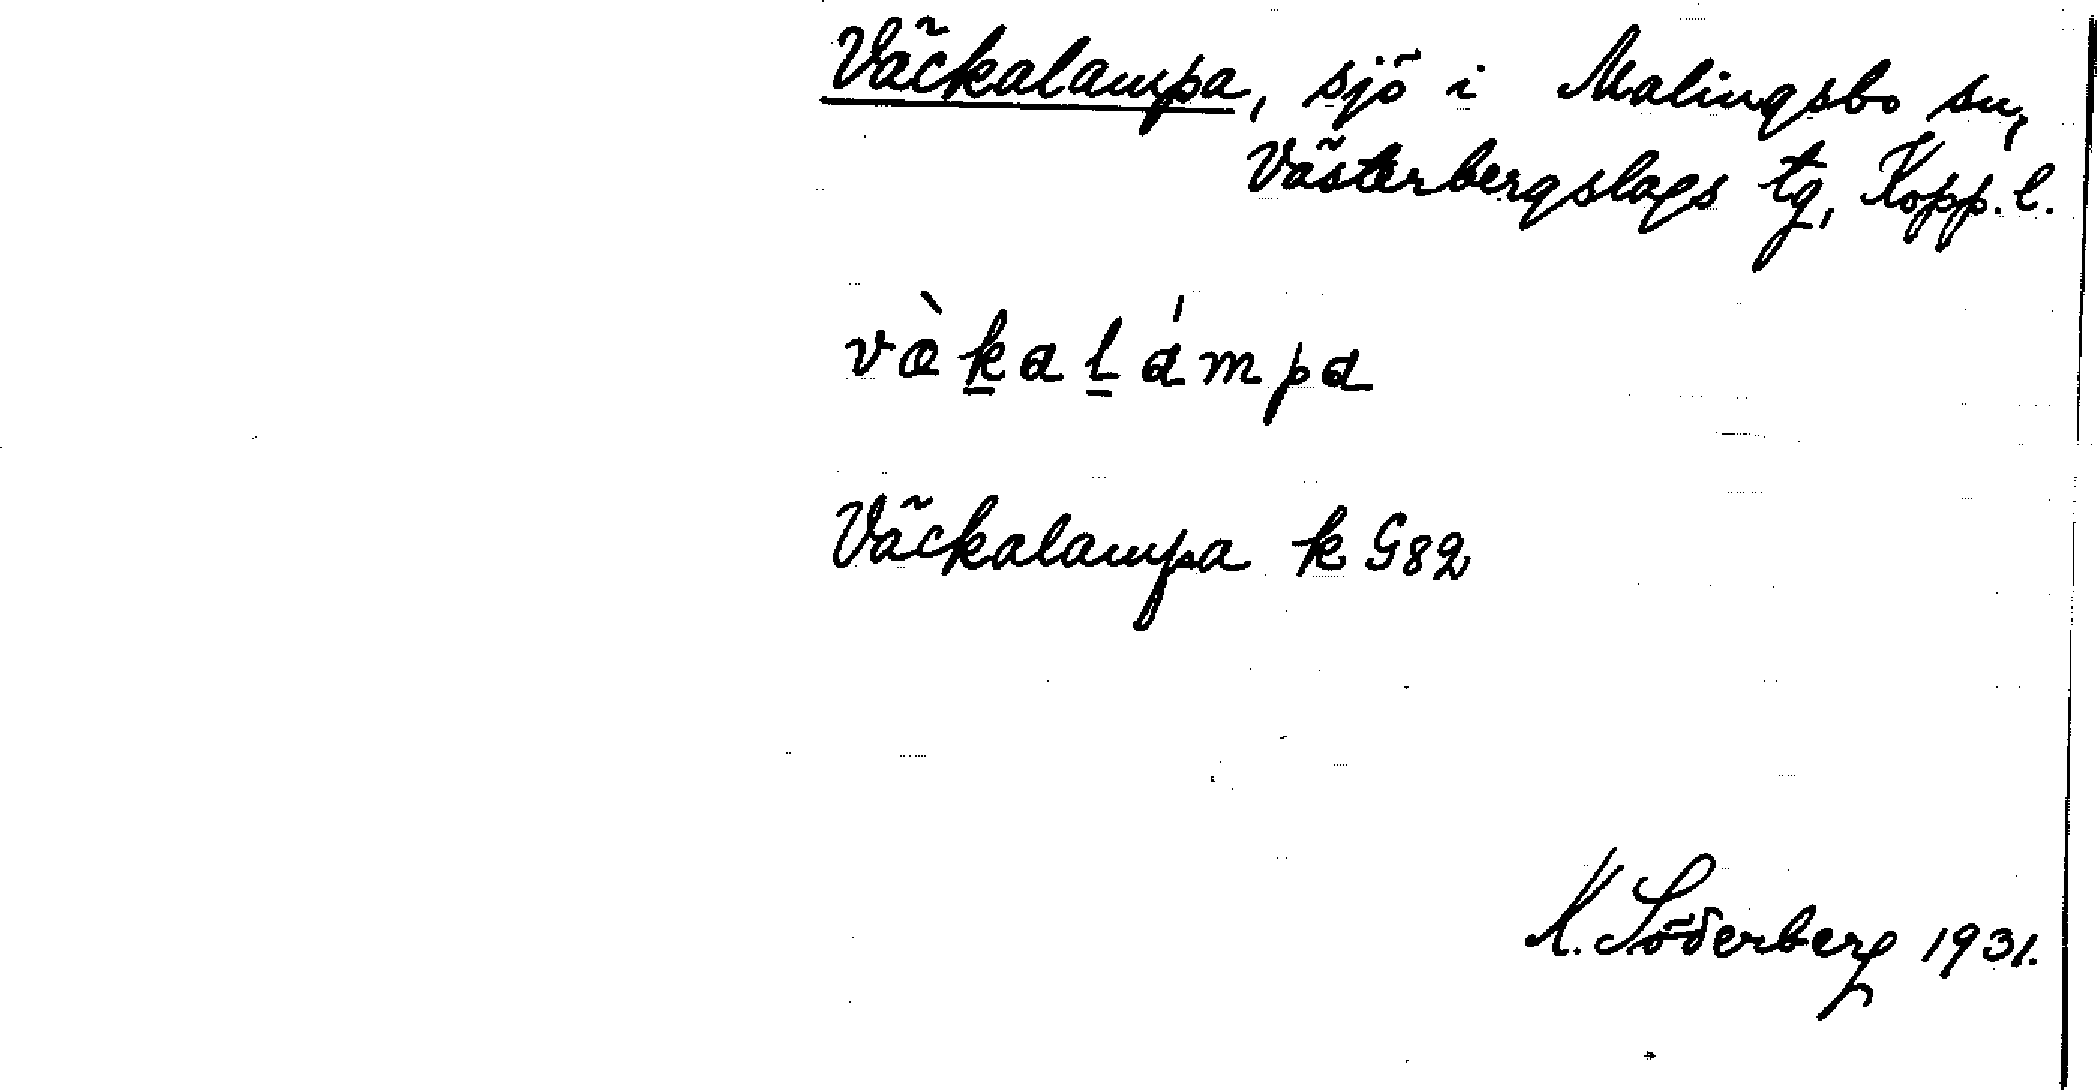 Väckalampa, sjö i Malingsbo sn,
Västerbergslags tg, Kopp. l.
væ̀k̠al̠ámpa
Väckalampa k G82
K. Söderberg 1931.